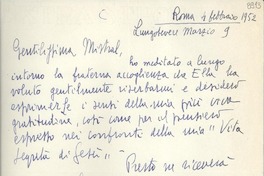 Roma 4 febbraio 1952
Lungotevere Marzio 9
Gentilissima Mistral,
ho meditato a lungo
intorno la fraterna accoglienza che Ella ha
voluto gentilmente riserbarmi e desidero
esprimerLe i sensi della mia più viva
gratitudine, così come per il pensiero
espresso nei confronti della mia "Vita
segreta di Gesù"
Presto ne riceverà